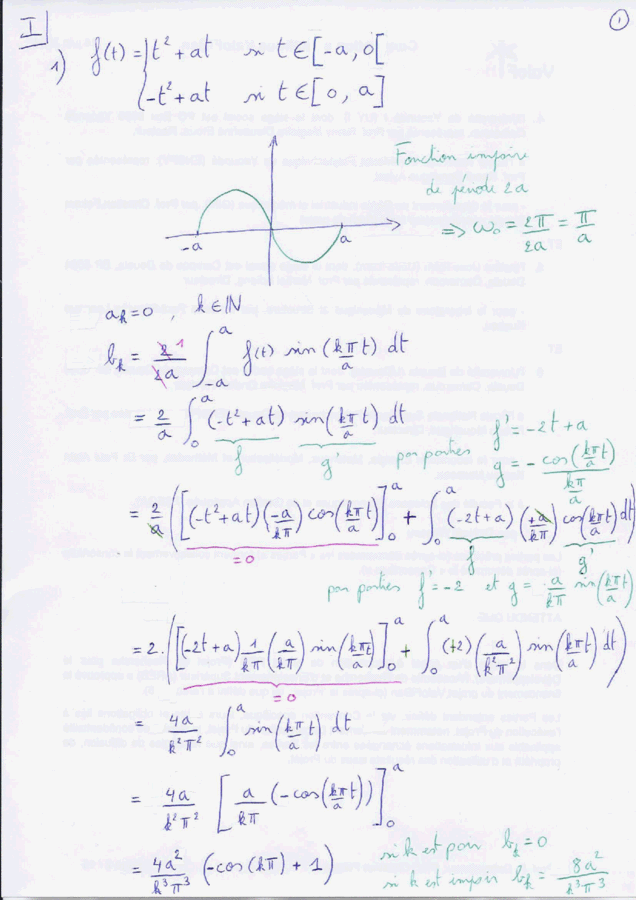 ①
I
1) f(t) = { t² + at si t ∈ [-a, 0[
-t² + at si t ∈ [0, a]
Fonction impaire
de période 2a
⟹ ω₀ = 2π/2a = π/a
-a a
aₖ = 0 , k ∈ ℕ
bₖ = 2̸ 1/2̸a ∫₋ₐᵃ f(t) sin(kπ/a t) dt
= 2/a ∫₀ᵃ (-t² + at) sin(kπ/a t) dt
f g' par parties f' = -2t + a
g = - cos(kπ/a t) / (kπ/a)
= 2/a̸ ([(-t² + at)(-a/kπ) cos(kπ/a t)]₀ᵃ + ∫₀ᵃ (-2t + a) (+a̸/kπ) cos(kπ/a t) dt)
= 0 f g'
par parties f' = -2 et g = a/kπ sin(kπ/a t)
= 2. ([(-2t + a) 1/kπ (a/kπ) sin(kπ/a t)]₀ᵃ + ∫₀ᵃ (+2) (a/k²π²) sin(kπ/a t) dt)
= 0
= 4a/k²π² ∫₀ᵃ sin(kπ/a t) dt
= 4a/k²π² [a/kπ (-cos(kπ/a t))]₀ᵃ
= 4a²/k³π³ (-cos(kπ) + 1)
si k est pair bₖ = 0
si k est impair bₖ = 8a²/k³π³